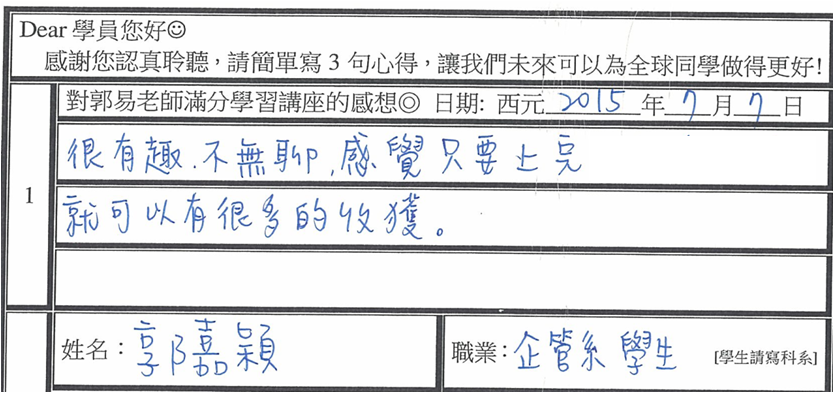 Dear 學員您好☺
感謝您認真聆聽，請簡單寫 3 句心得，讓我們未來可以為全球同學做得更好!
1
對郭易老師滿分學習講座的感想◎ 日期: 西元 2015 年 7 月 7 日
很有趣.不無聊,感覺只要上完
就可以有很多的收獲。
姓名：郭嘉穎
職業：企管系 學生 [學生請寫科系]